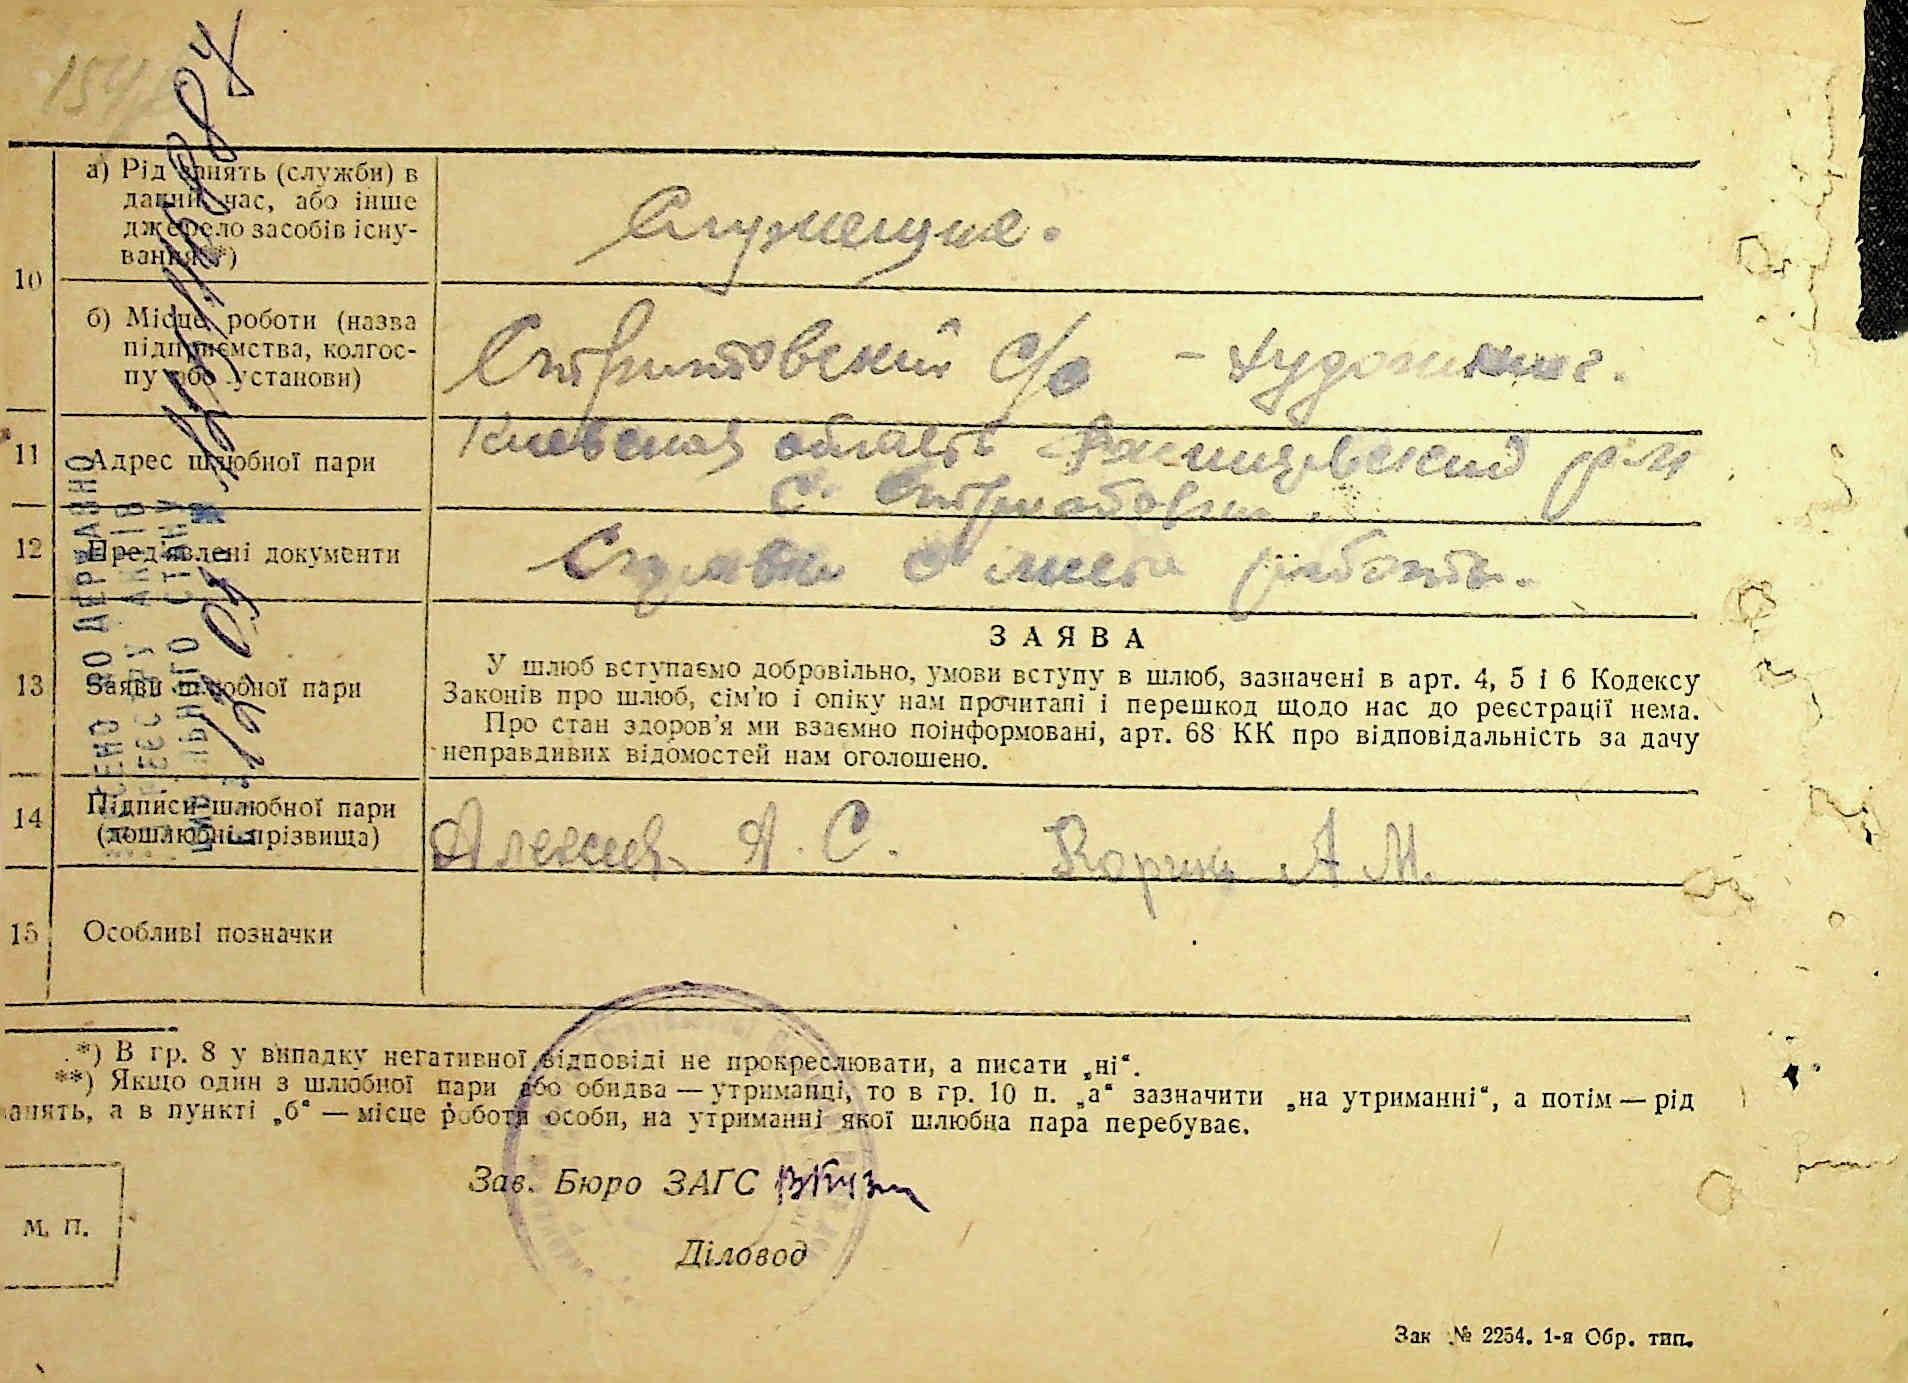 154
10
а) Рід занять (служби) в
даний час, або інше
джерело засобів існу-
вання**)
Служащие.
б) Місце роботи (назва
підприємства, колгос-
пу або установи)
с/с - художник.
11
Адрес шлюбної пари
Киевская область р-н
с.
12
Пред'явлені документи
Справки с места работы.
13
Заяви шлюбної пари
ЗАЯВА
У шлюб вступаємо добровільно, умови вступу в шлюб, зазначені в арт. 4, 5 і 6 Кодексу
Законів про шлюб, сім'ю і опіку нам прочитані і перешкод щодо нас до реєстрації нема.
Про стан здоров'я ми взаємно поінформовані, арт. 68 КК про відповідальність за дачу
неправдивих відомостей нам оголошено.
14
Підписи шлюбної пари
(дошлюбні прізвища)
А. С. А. М.
15
Особливі позначки
*) В гр. 8 у випадку негативної відповіді не прокреслювати, а писати „ні“.
**) Якщо один з шлюбної пари або обидва — утриманці, то в гр. 10 п. „а“ зазначити „на утриманні“, а потім — рід
занять, а в пункті „б“ — місце роботи особи, на утриманні якої шлюбна пара перебуває.
Зав. Бюро ЗАГС
м. п.
Діловод
Зак № 2254. 1-я Обр. тип.
ДО ДЕРЖАВНО
РЕЄСТРУ АКТІВ
ЦИВІЛЬНОГО СТАНУ